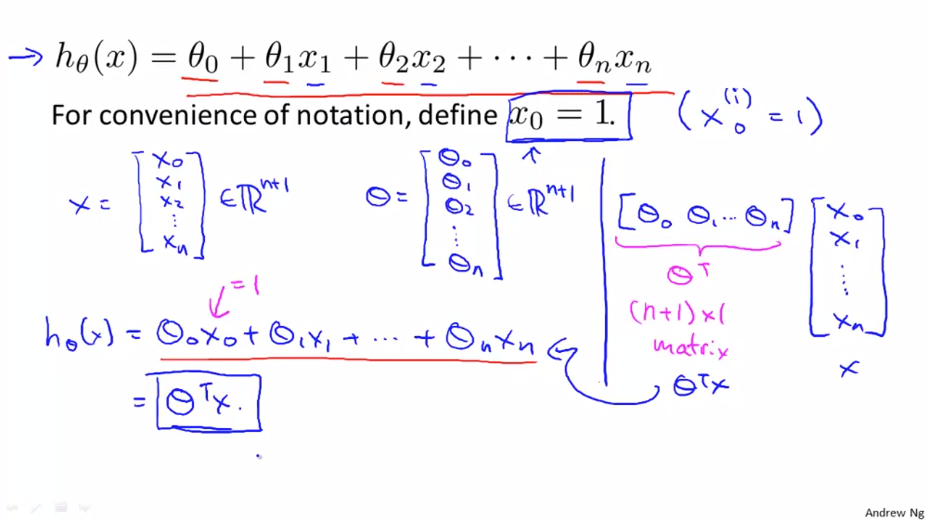 → hθ(x) = θ₀ + θ₁x₁ + θ₂x₂ + ··· + θₙxₙ
For convenience of notation, define x₀ = 1. (x₀⁽ⁱ⁾ = 1)
x = [x₀ x₁ x₂ ⋮ xₙ] ∈ ℝⁿ⁺¹ θ = [θ₀ θ₁ θ₂ ⋮ θₙ] ∈ ℝⁿ⁺¹
[θ₀ θ₁ ··· θₙ] [x₀ x₁ ⋮ xₙ]
θᵀ
(n+1) x 1
matrix
x
θᵀx
= 1
hθ(x) = θ₀x₀ + θ₁x₁ + ··· + θₙxₙ
= θᵀx.
Andrew Ng